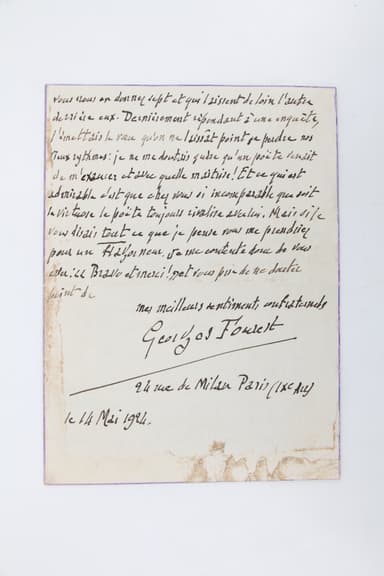 vous nous en donnez sept et qui laissent de loin l'autre
derrière eux. Dernièrement répondant à une enquête,
j'émettais le vœu qu'on ne laissât point se perdre nos
vieux rythmes : je ne me doutais guère qu'un poète venait
de m'exaucer et avec quelle maîtrise ! Et ce qui est
admirable c'est que chez vous si incomparable que soit
le virtuose le poète toujours rivalise avec lui. Mais si je
vous disais tout ce que je pense vous me prendriez
pour un Flagorneur, je me contente donc de vous
crier : Bravo et merci ! et vous prie de ne douter
point de
mes meilleurs sentiments confraternels
Georges Fourest
24 rue de Milan Paris (IXe Arr)
le 14 Mai 1924.